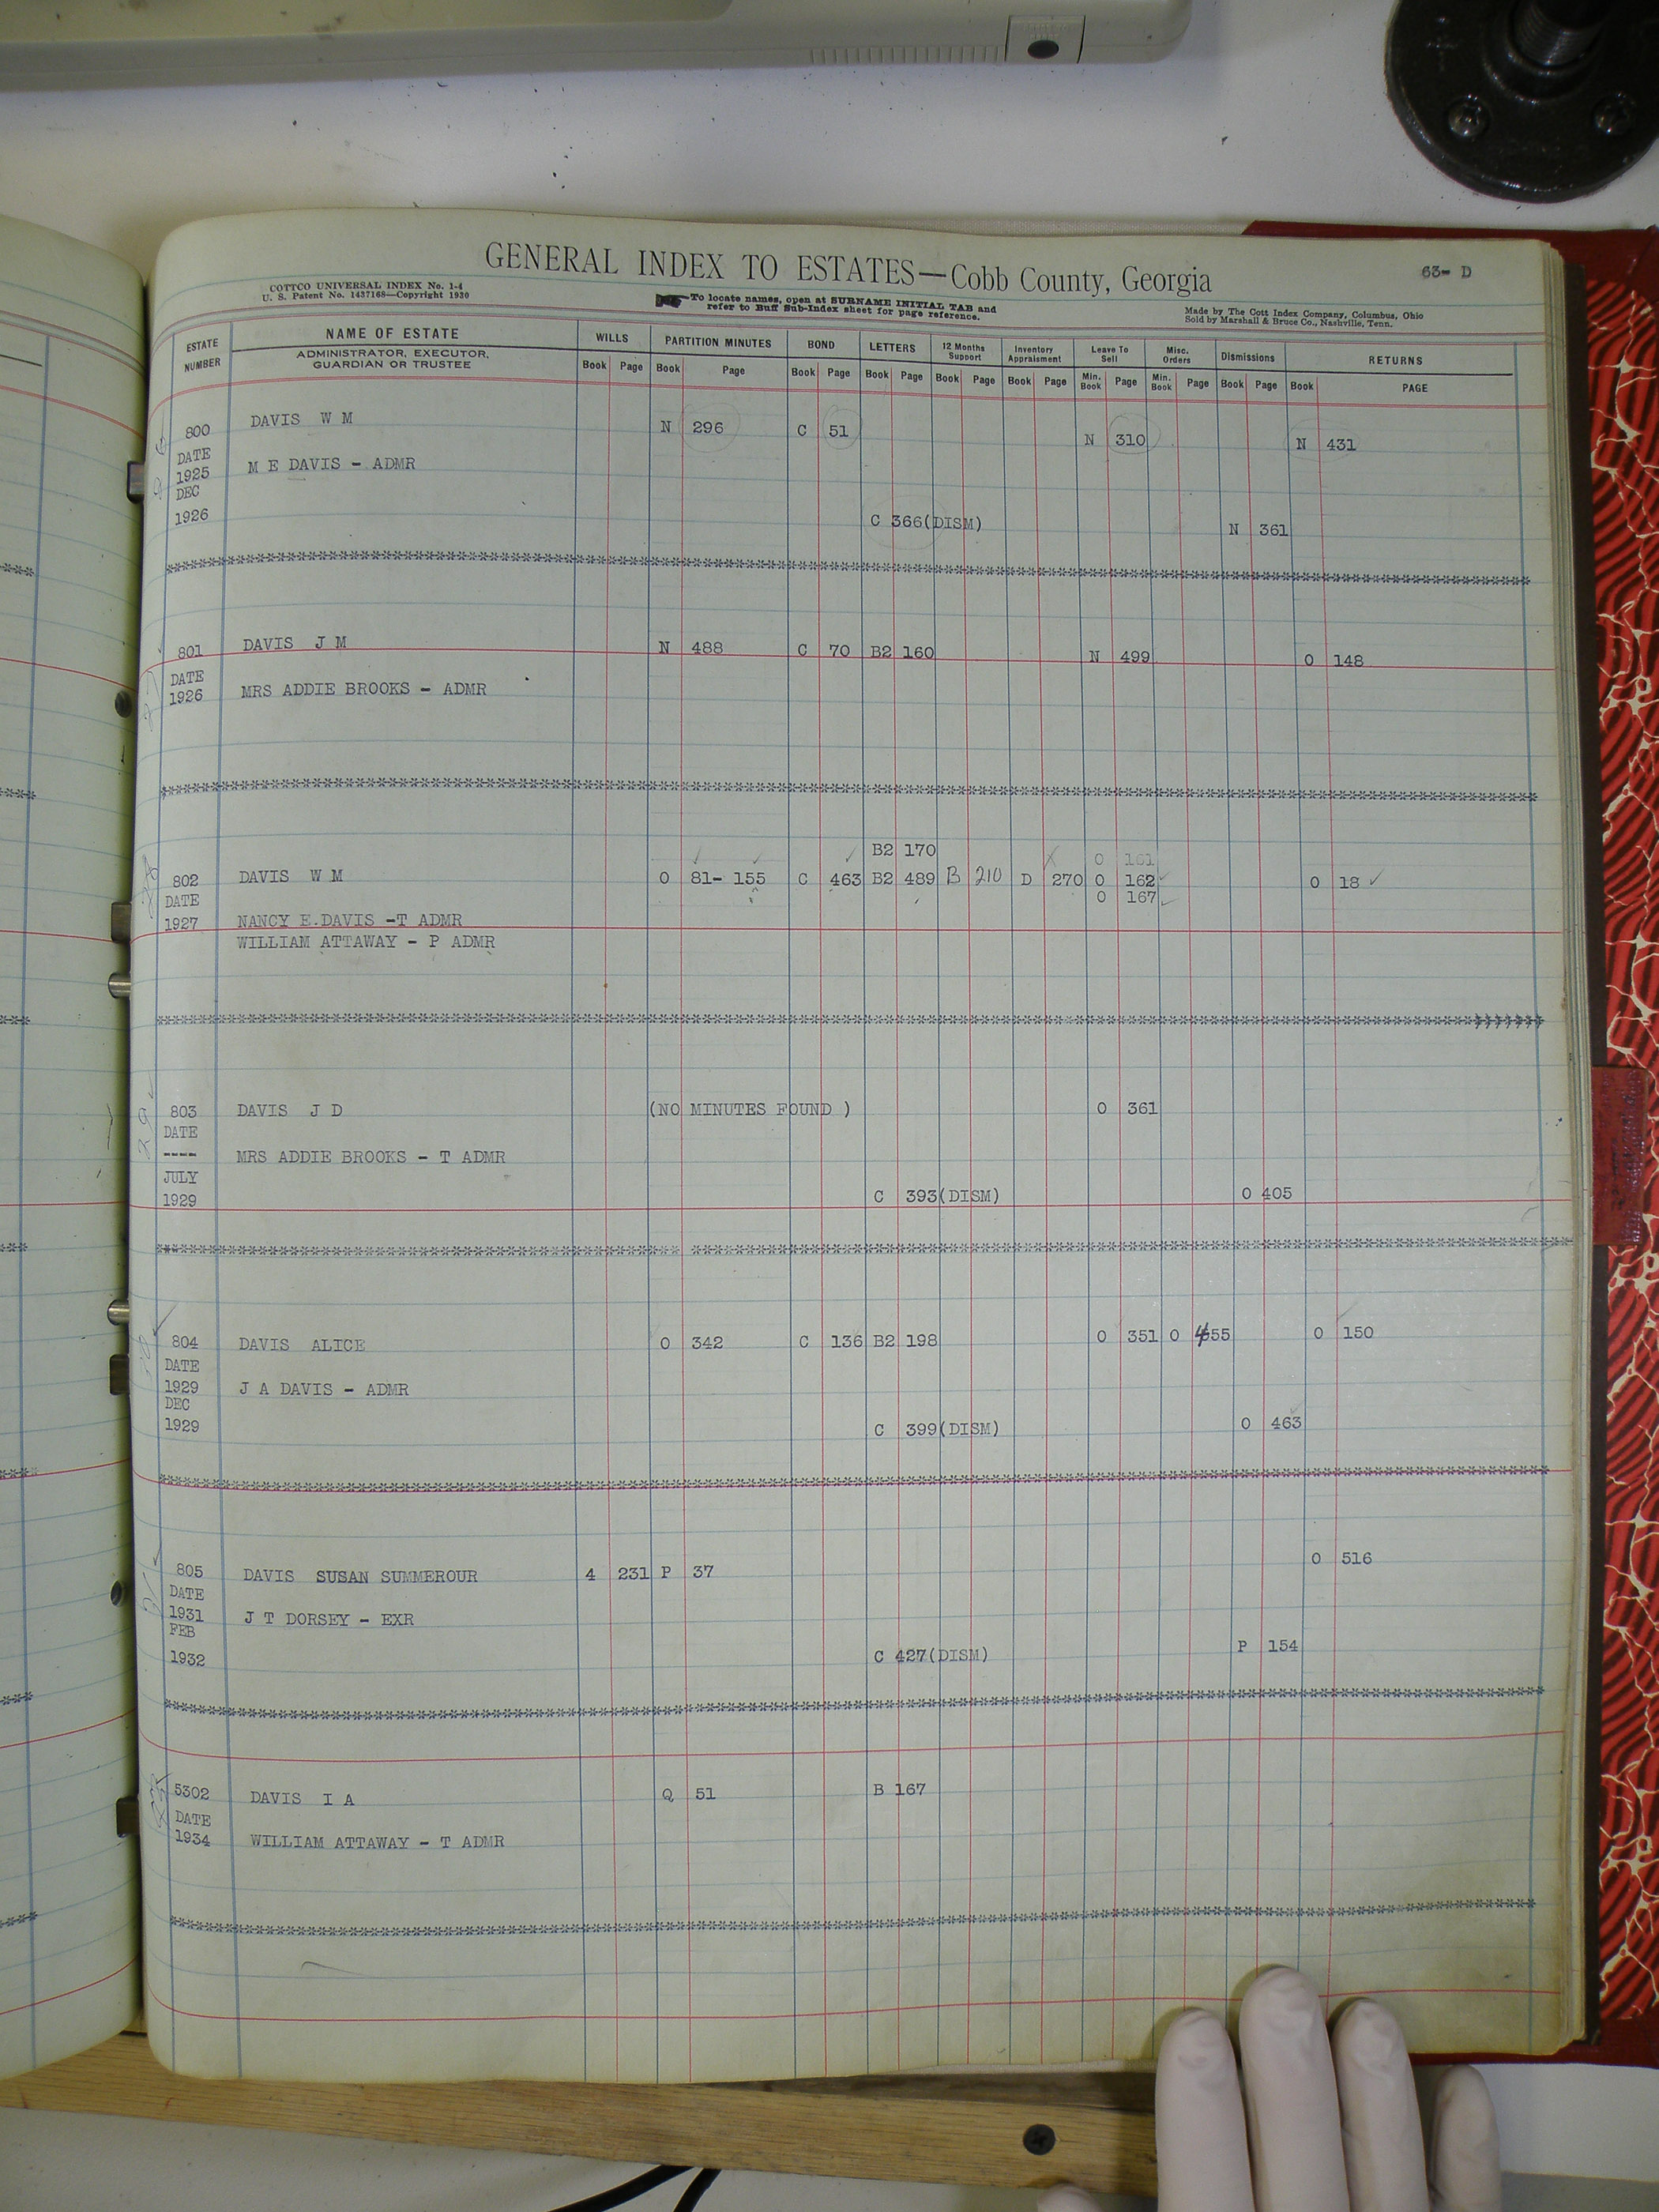 GENERAL INDEX TO ESTATES—Cobb County, Georgia
63- D
COTTCO UNIVERSAL INDEX No. 1-4
U. S. Patent No. 1437168—Copyright 1930
To locate names, open at SURNAME INITIAL TAB and
refer to Buff Sub-Index sheet for page reference.
Made by The Cott Index Company, Columbus, Ohio
Sold by Marshall & Bruce Co., Nashville, Tenn.
ESTATE NUMBER NAME OF ESTATE WILLS PARTITION MINUTES BOND LETTERS 12 Months Support Inventory Appraisment Leave To Sell Misc. Orders Dismissions RETURNS
ADMINISTRATOR, EXECUTOR,
GUARDIAN OR TRUSTEE
Book Page Book Page Book Page Book Page Book Page Book Page Min. Book Page Min. Book Page Book Page Book PAGE
800 DAVIS W M N 296 C 51 N 310 N 431
DATE
1925 M E DAVIS - ADMR
DEC
1926 C 366(DISM) N 361
801 DAVIS J M N 488 C 70 B2 160 N 499 O 148
DATE
1926 MRS ADDIE BROOKS - ADMR
B2 170 O 161
802 DAVIS W M O 81- 155 C 463 B2 489 B 210 D 270 O 162 O 18
DATE O 167
1927 NANCY E.DAVIS -T ADMR
WILLIAM ATTAWAY - P ADMR
803 DAVIS J D (NO MINUTES FOUND ) O 361
DATE
---- MRS ADDIE BROOKS - T ADMR
JULY
1929 C 393(DISM) O 405
804 DAVIS ALICE O 342 C 136 B2 198 O 351 O 455 O 150
DATE
1929 J A DAVIS - ADMR
DEC
1929 C 399(DISM) O 463
O 516
805 DAVIS SUSAN SUMMEROUR 4 231 P 37
DATE
1931 J T DORSEY - EXR
FEB
1932 C 427(DISM) P 154
5302 DAVIS I A Q 51 B 167
DATE
1934 WILLIAM ATTAWAY - T ADMR